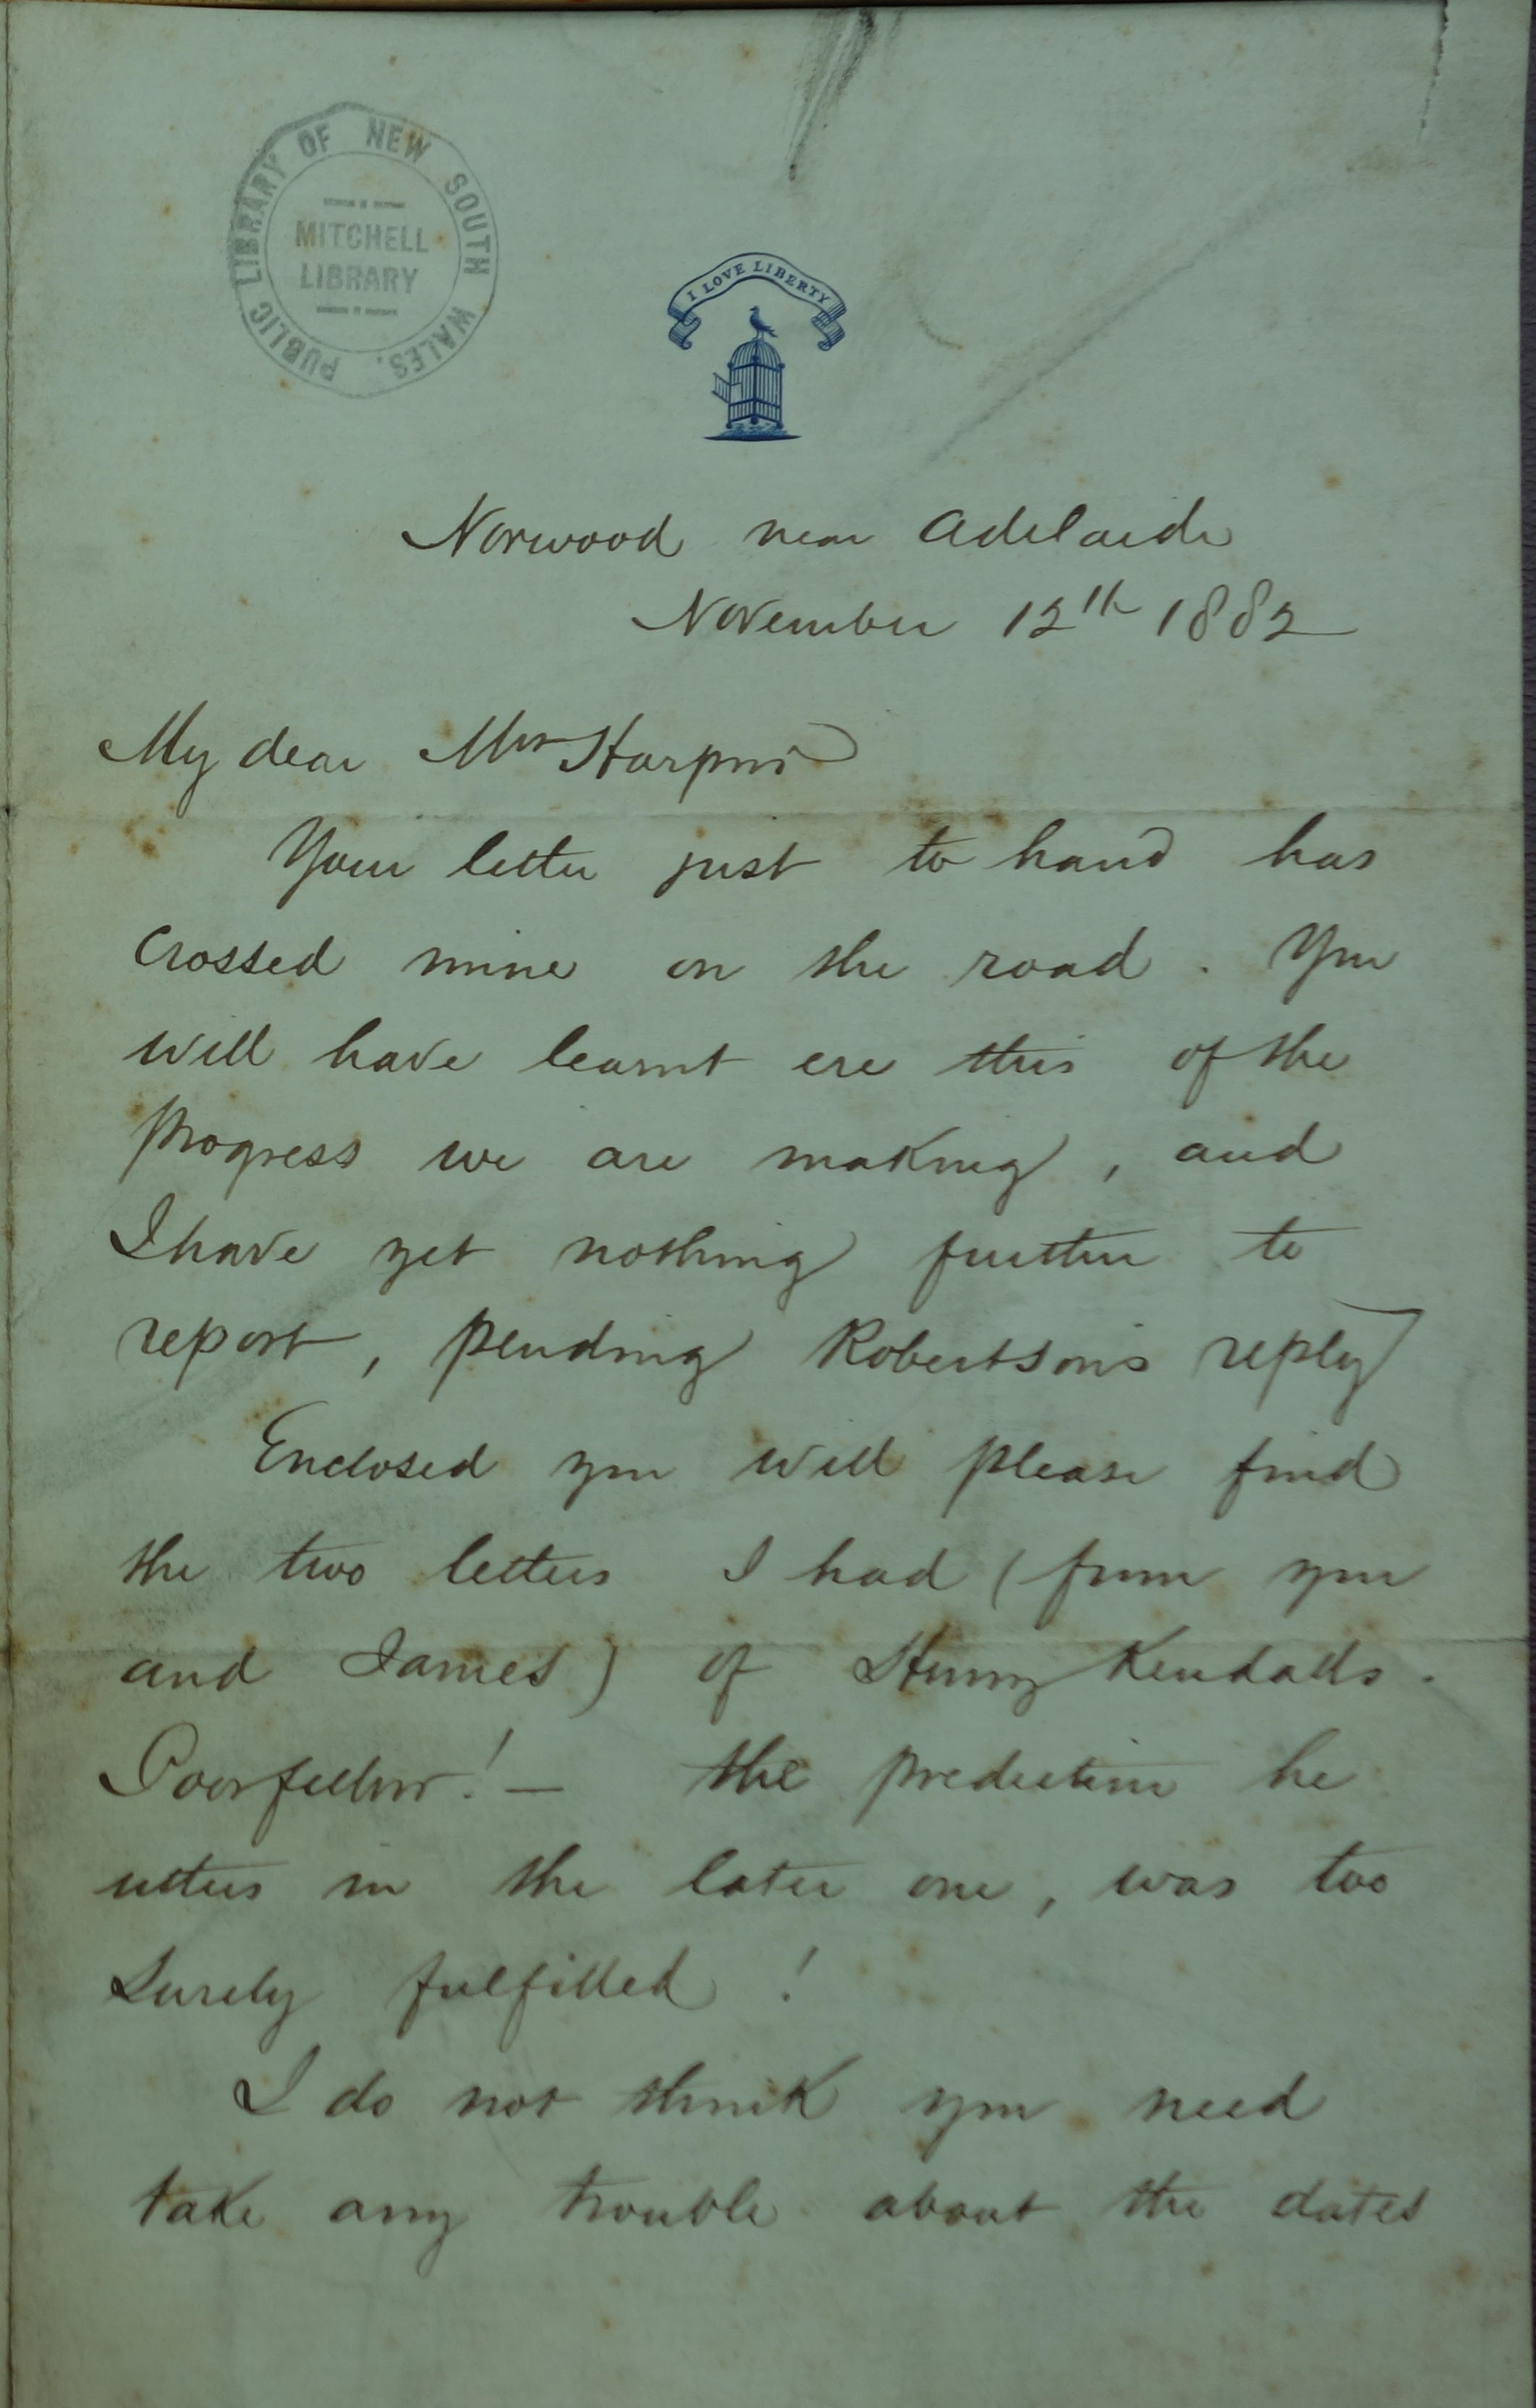 PUBLIC LIBRARY OF NEW SOUTH WALES.
MITCHELL
LIBRARY
I LOVE LIBERTY
Norwood near Adelaide
November 12th 1882
My dear Mrs Harpur
Your letter just to hand has
crossed mine on the road. You
will have learnt ere this of the
progress we are making, and
I have yet nothing further to
report, pending Robertson's reply
Enclosed you will please find
the two letters I had (from you
and James) of Henry Kendalls.
Poor fellow! — the prediction he
utters in the later one, was too
surely fulfilled!
I do not think you need
take any trouble about the dates